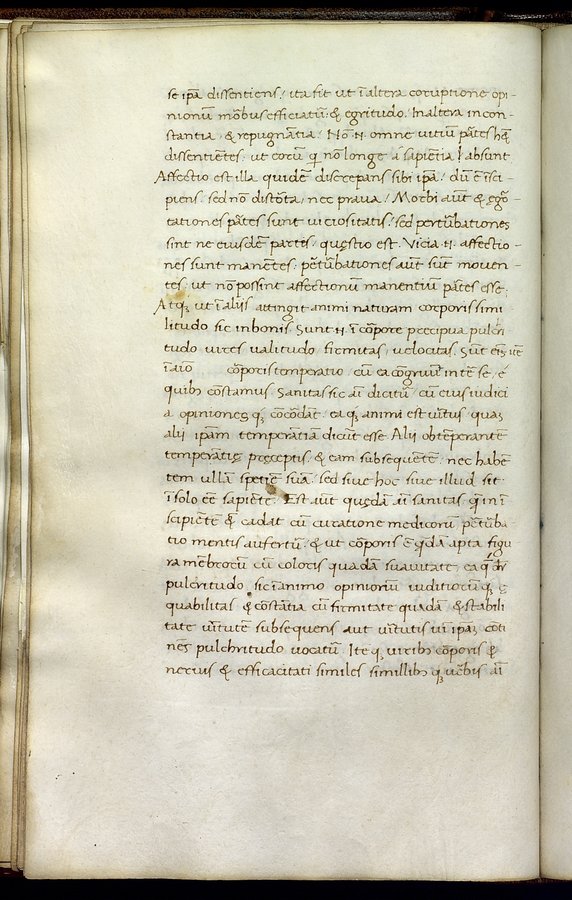 se ip̄a dissentiens / ita fit ut ī altera coruptione opi-
nionū mōbus efficiatū & egritudo / In altera incon-
stantia & repugnātia / Nō .n. omne uitiū p̄ates hꝫ
dissentiētes ut eorū qͥ nō longe a sapiētia absunt
Affectio est illa quidē discrepans sibi ip̄i / dū ē īsci-
piens / sed non distōta / nec praua / Morbi aūt & egͦ-
tationes p̄ates sunt uiciositatis / sed pertūbationes
sint ne eiusdē partes / quęstio est. Vicia .n. affectio-
nes sunt manētes / p̄etūbationes aūt sūt mouen-
tes ut nō possint affectionum manentiū p̄ates esse.
Atqꝫ ut ī aliis attingit animi naturam corporis simi
litudo sic in bonis. Sunt .n. ī cōpore precipua pulcri
tudo uires ualitudo firmitas uelocitas. Sūt
ī aīo cōporis temperatio / cū ea cōgruūt int̄e se / e
quibꝫ cōstamus Sanitas sic aī dicitū cū eius iudici
a opinionesqꝫ cōcōdāt / eaqꝫ animi est uītus quaꝫ
alii ip̄am temperātiam dicūt esse Alii obtēperantē
temperātię pręceptis & eam subsequētē nec habē
tem ullā spetiē suā sed siue hoc siue illud sit
ī solo eē sapiēte. Est aūt quędā aī sanitas
īscipiētē & cadat cū curatione medicorū p̄etūba
tio mentis aufertū & ut cōporis ē qͥdā apta figu
ra mēbrorū cū coloris quadā suauitate
pulcritudo sic ī animo opinionū iuditiorūqꝫ ę
quabilitas & cōstātia cū firmitate quadā & stabili
tate uītutē subsequens aut uītutis uī ip̄aꝫ cōti
nēs pulchritudo uocatū. Itēqꝫ uiribꝫ cōporis &
neruis & efficacitati similes simillibꝫqꝫ uēbis aī